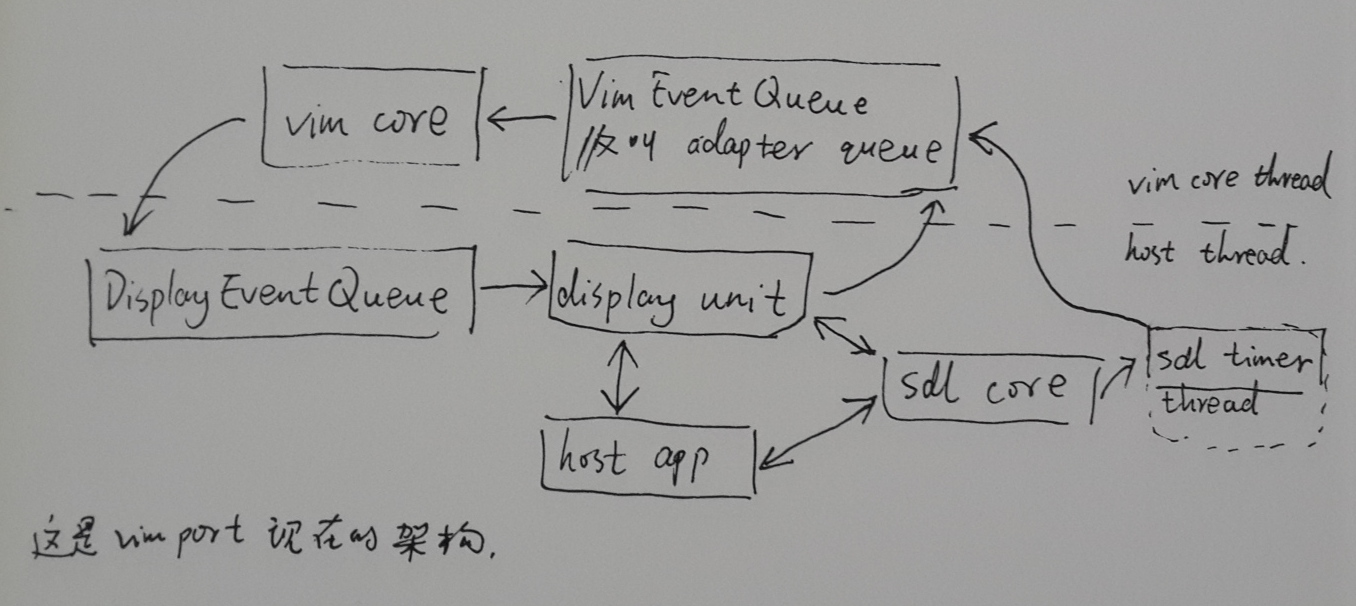 vim core
Vim Event Queue
//及叫 adapter queue
vim core thread
host thread.
Display Event Queue
display unit
sdl core
sdl timer
thread
host app
这是 vim port 现在的架构.